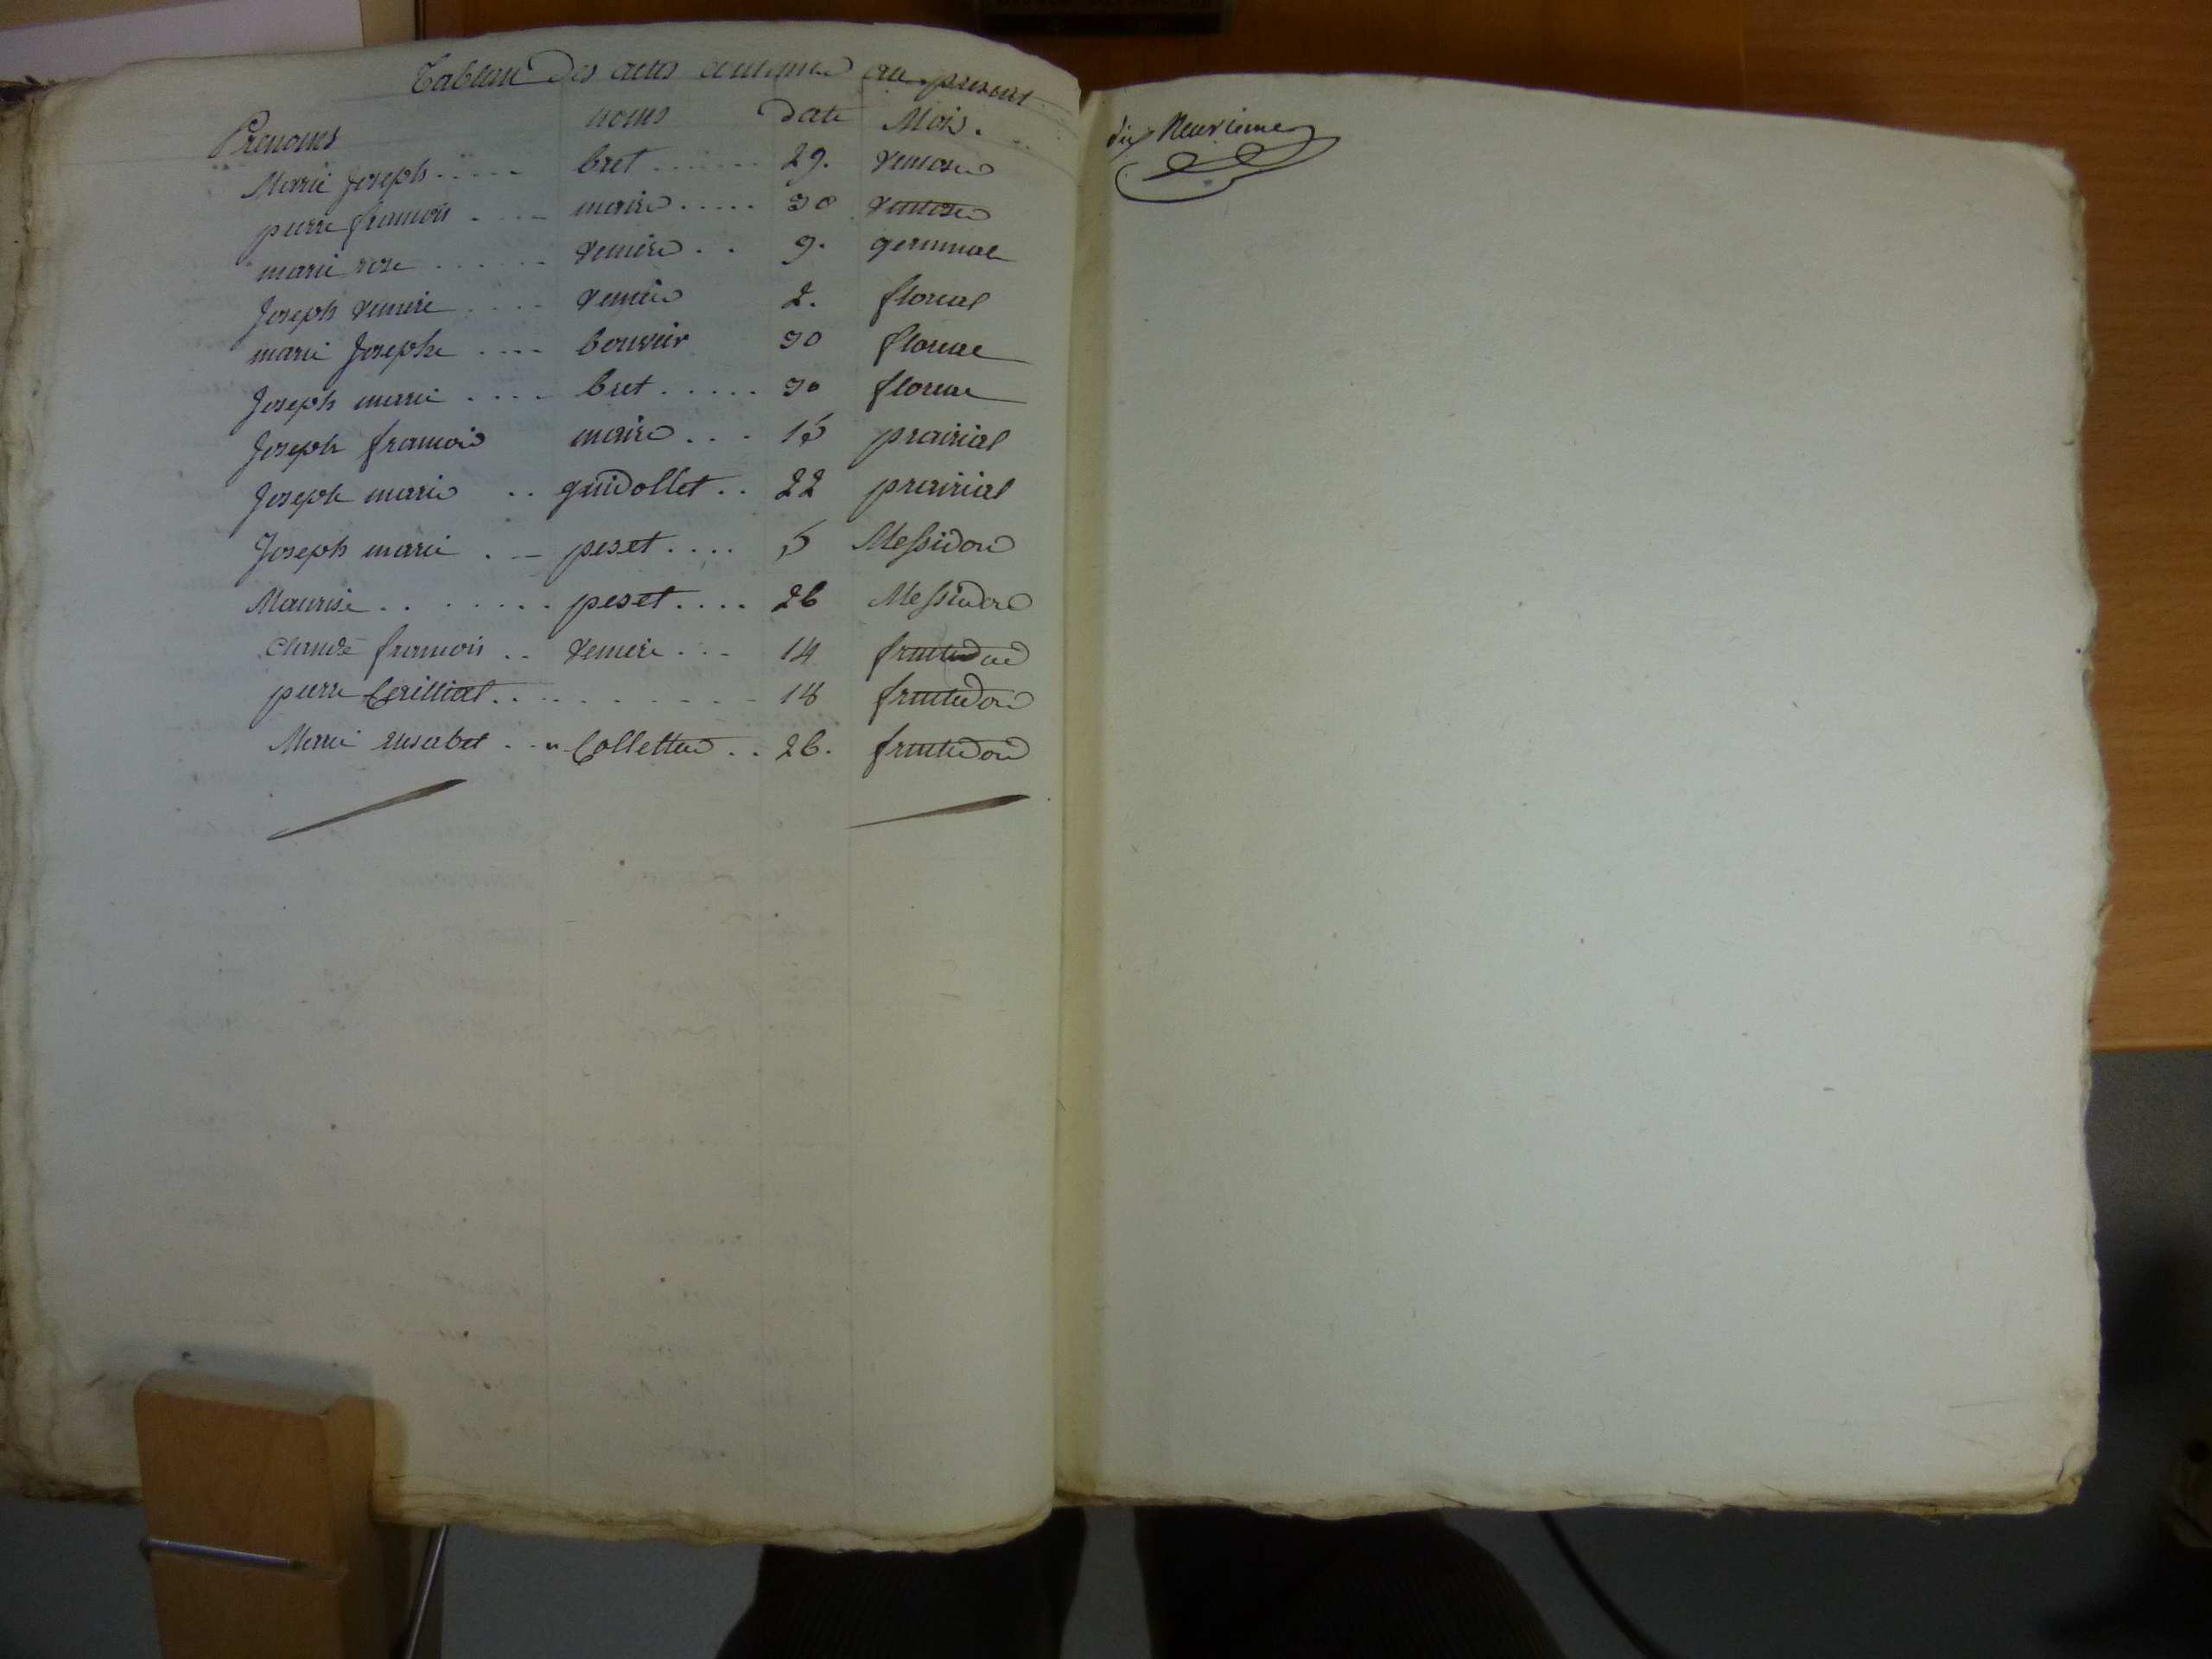 Tableau des actes contenus au present
Prenoms noms date Mois.
Marie Joseph ..... bret ...... 29. ventose
pierre francois .... maire ..... 30 ventose
marie rose ...... venière .. 9. germinal
Joseph venière .... venière 2. floreal
marie Josephe .... bouvier 30 floreal
Joseph marie .... bret ..... 30 floreal
Joseph francois maire ... 15 prairial
Joseph marie .. guidollet .. 22 prairial
Joseph marie .. peset .... 5 Messidore
Maurise ........ peset .... 26 Messidore
Claude francois .. venière ... 14 fructidore
pierre ......... 18 fructidore
Marie .. Collettaz .. 26. fructidore
dix Neuvieme